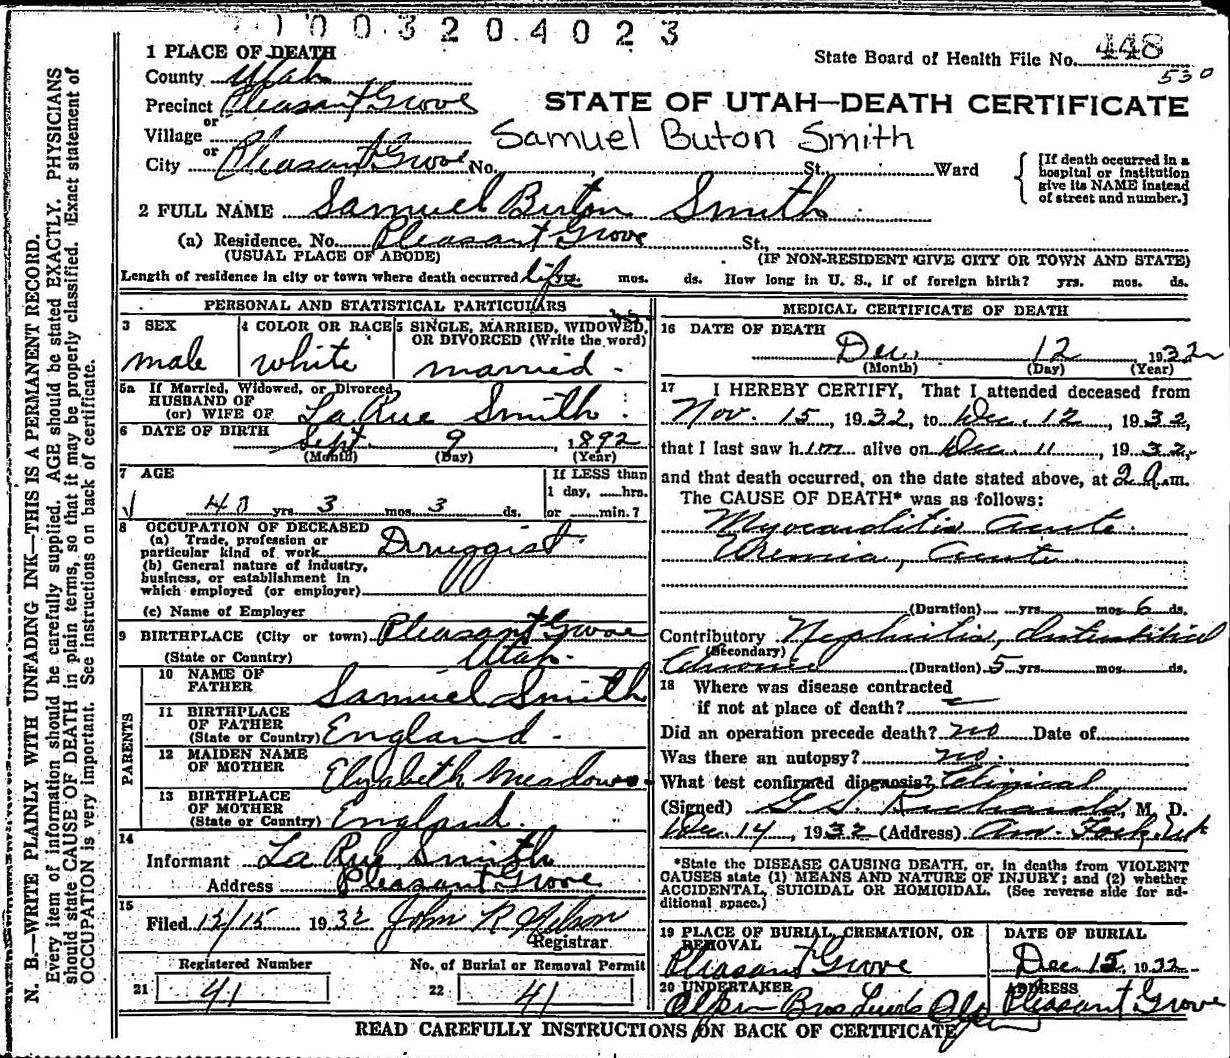 1003204023
State Board of Health File No. 448
530
1 PLACE OF DEATH
County Utah
Precinct Pleasant Grove
or
Village
or
City Pleasant Grove No. St. Ward
STATE OF UTAH—DEATH CERTIFICATE
Samuel Buton Smith
[If death occurred in a
hospital or institution
give its NAME instead
of street and number.]
2 FULL NAME Samuel Buton Smith
(a) Residence. No. Pleasant Grove St.,
(USUAL PLACE OF ABODE) (IF NON-RESIDENT GIVE CITY OR TOWN AND STATE)
Length of residence in city or town where death occurred life yrs. mos. ds. How long in U. S., if of foreign birth? yrs. mos. ds.
PERSONAL AND STATISTICAL PARTICULARS
3 SEX
male
4 COLOR OR RACE
white
5 SINGLE, MARRIED, WIDOWED,
OR DIVORCED (Write the word)
married
5a If Married, Widowed, or Divorced
HUSBAND OF
(or) WIFE OF La Rue Smith
6 DATE OF BIRTH Sept. 9 1892
(Month) (Day) (Year)
7 AGE
40 yrs. 3 mos. 3 ds.
If LESS than
1 day, hrs.
or min.?
8 OCCUPATION OF DECEASED
(a) Trade, profession or
particular kind of work Druggist
(b) General nature of industry,
business, or establishment in
which employed (or employer)
(c) Name of Employer
9 BIRTHPLACE (City or town) Pleasant Grove
(State or Country) Utah
PARENTS
10 NAME OF
FATHER Samuel Smith
11 BIRTHPLACE
OF FATHER
(State or Country) England
12 MAIDEN NAME
OF MOTHER Elizabeth Meadows
13 BIRTHPLACE
OF MOTHER
(State or Country) England
14
Informant La Rue Smith
Address Pleasant Grove
15
Filed 12/15 1932 John R Wilson
Registrar
Registered Number
21 41
No. of Burial or Removal Permit
22 41
MEDICAL CERTIFICATE OF DEATH
16 DATE OF DEATH
Dec. 12, 1932
(Month) (Day) (Year)
17 I HEREBY CERTIFY, That I attended deceased from
Nov. 15, 1932, to Dec. 12, 1932,
that I last saw him alive on Dec. 11, 1932,
and that death occurred, on the date stated above, at 2 A.m.
The CAUSE OF DEATH* was as follows:
Myocarditis Acute
Uremia, Acute
(Duration) yrs. mos. 6 ds.
Contributory Nephritis, Interstitial
(Secondary)
Chronic (Duration) 5 yrs. mos. ds.
18 Where was disease contracted
if not at place of death?
Did an operation precede death? no Date of
Was there an autopsy? no.
What test confirmed diagnosis? Clinical
(Signed) G. S. Richards, M. D.
Dec. 14, 1932 (Address) Am. Fork, Ut
*State the DISEASE CAUSING DEATH, or, in deaths from VIOLENT
CAUSES state (1) MEANS AND NATURE OF INJURY; and (2) whether
ACCIDENTAL, SUICIDAL OR HOMICIDAL. (See reverse side for ad-
ditional space.)
19 PLACE OF BURIAL, CREMATION, OR
REMOVAL
Pleasant Grove
DATE OF BURIAL
Dec. 15, 1932
20 UNDERTAKER
Bros
ADDRESS
Pleasant Grove
READ CAREFULLY INSTRUCTIONS ON BACK OF CERTIFICATE
N. B.—WRITE PLAINLY WITH UNFADING INK—THIS IS A PERMANENT RECORD.
Every item of information should be carefully supplied. AGE should be stated EXACTLY. PHYSICIANS
should state CAUSE OF DEATH in plain terms, so that it may be properly classified. Exact statement of
OCCUPATION is very important. See instructions on back of certificate.